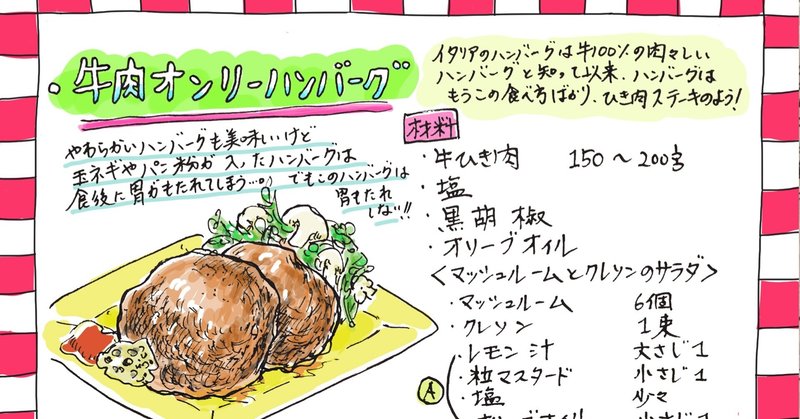 牛肉オンリーハンバーグ
イタリアのハンバーグは牛100%の肉々しい
ハンバーグと知って以来、ハンバーグは
もうこの食べ方ばかり、ひき肉ステーキのよう!
やわらかいハンバーグも美味いけど
玉ネギやパン粉が入ったハンバーグは
食後に胃がもたれてしまう…。でもこのハンバーグは
胃もたれ
しない!!
材料
・牛ひき肉 150〜200g
・塩
・黒胡椒
・オリーブオイル
<マッシュルームとクレソンのサラダ>
・マッシュルーム 6個
・クレソン 1束
・レモン汁 大さじ1
・粒マスタード 小さじ1
A
・塩 少々
・オリーブオイル 小さじ1